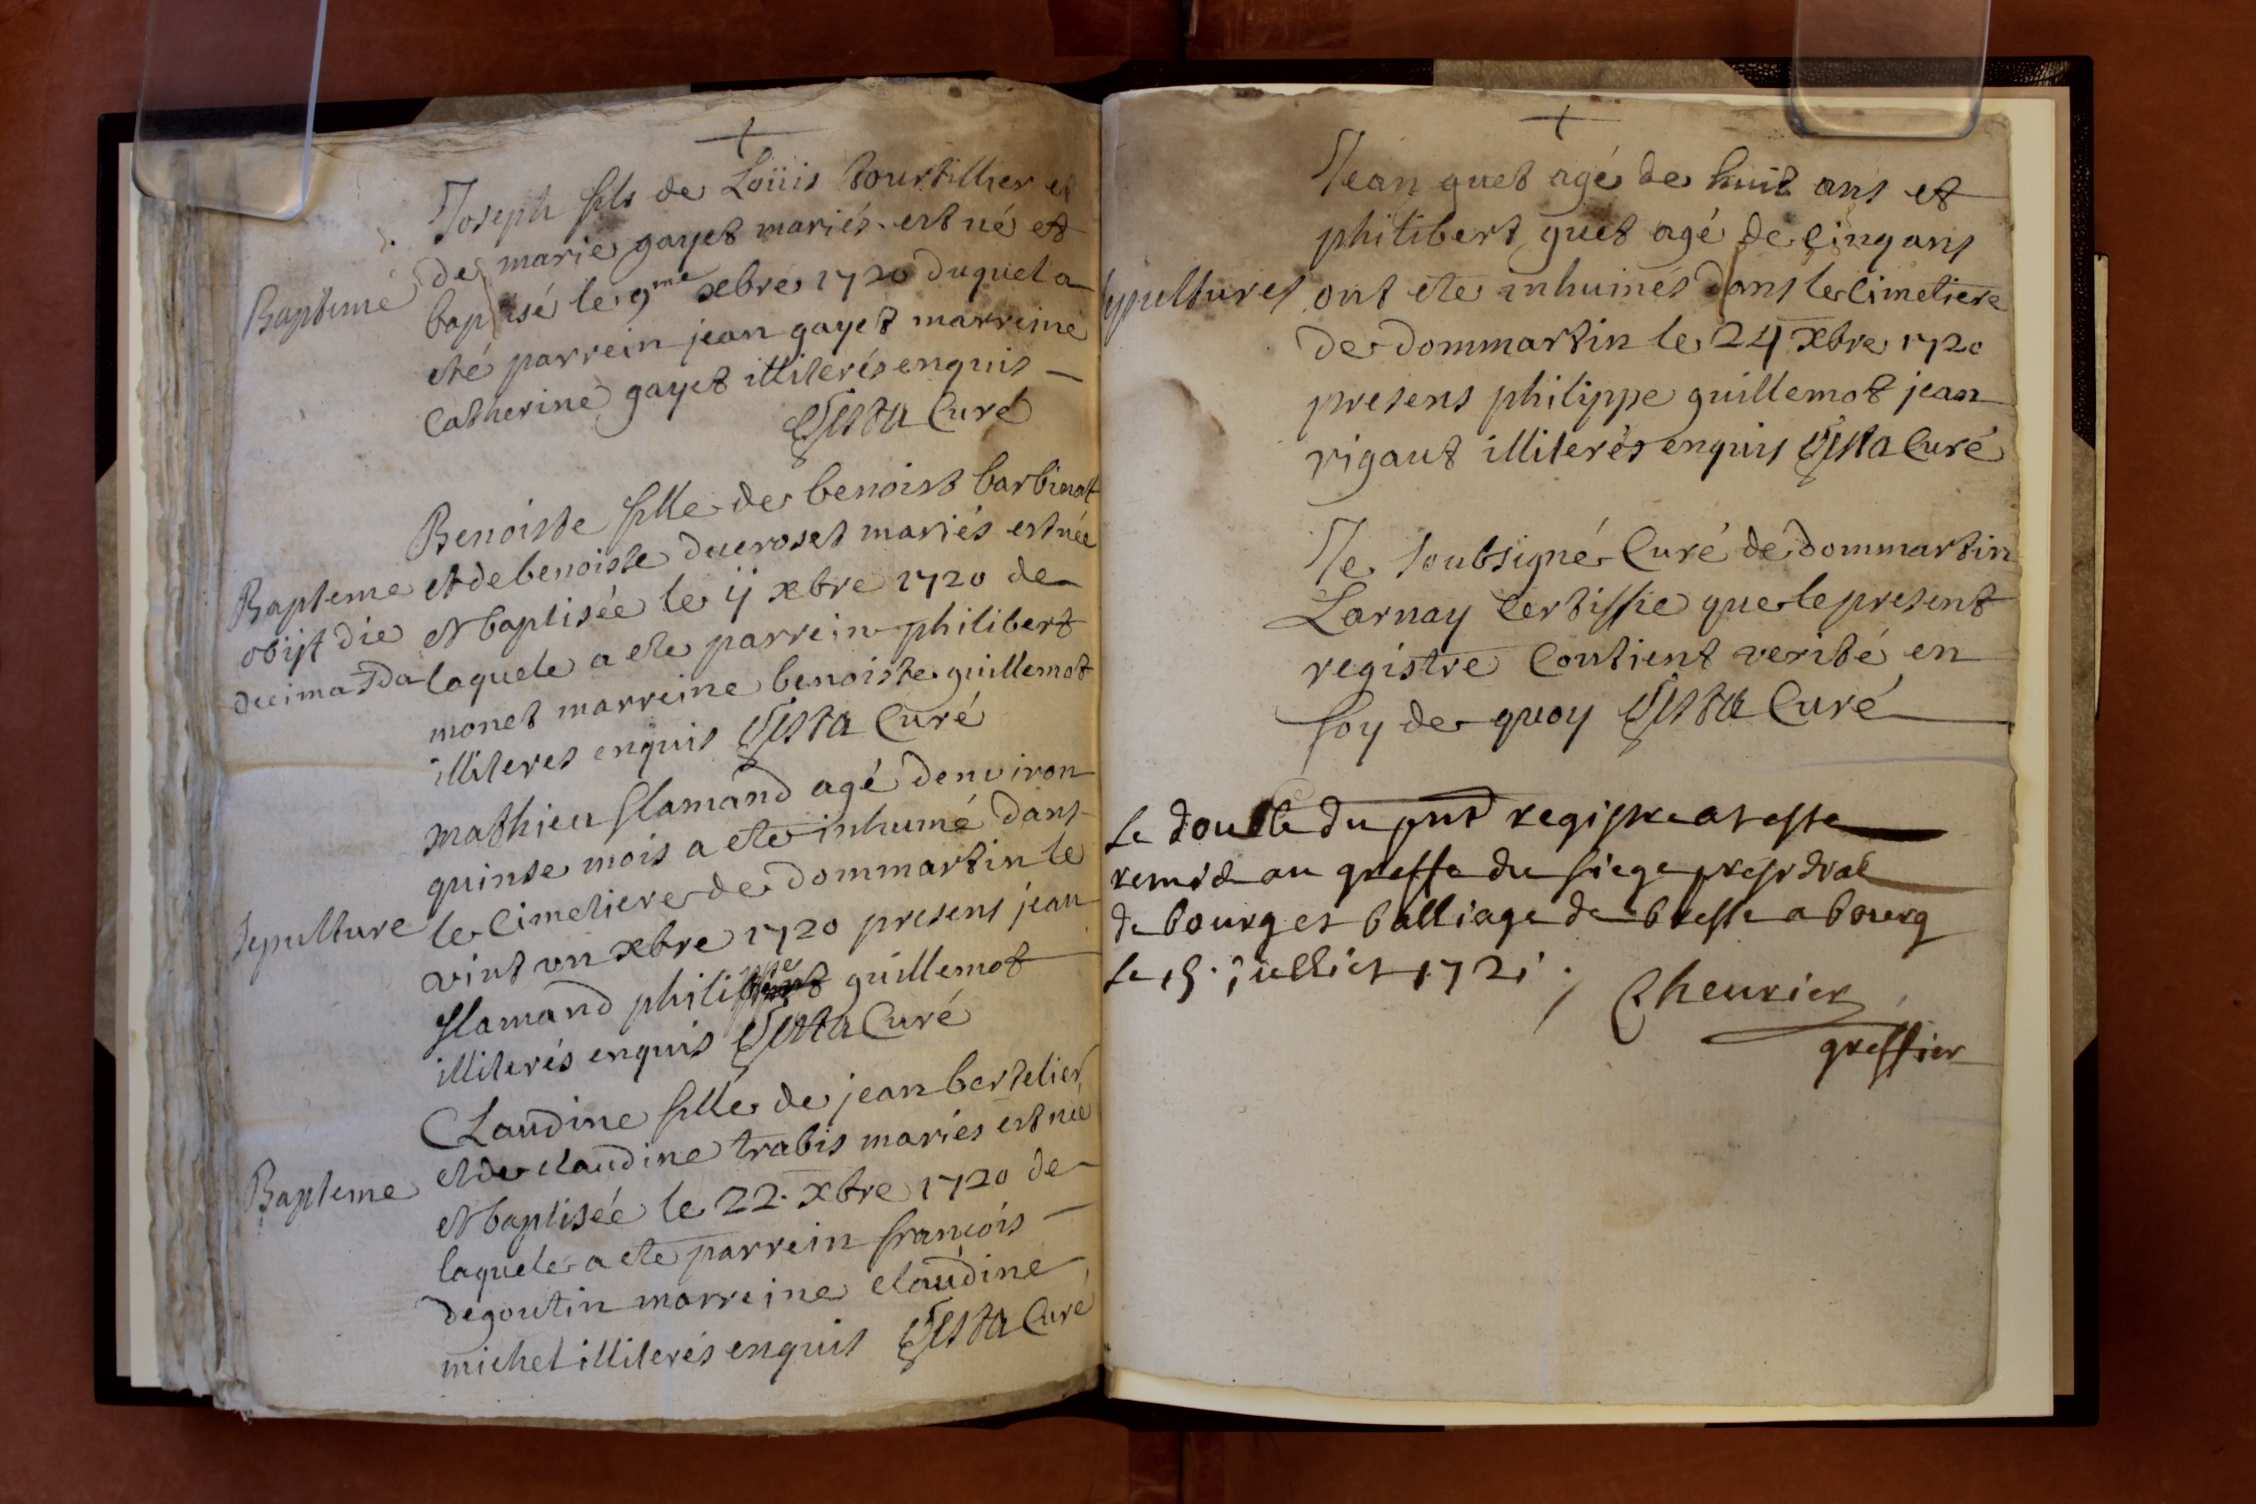 Joseph fils de Loüis tourtillier et
de marie gayet mariés est né et
Bapteme baptisé le 9me xbre 1720 duquel a
eté parrein jean gayet marreine
Catherine gayet illiterés enquis
Vista Curé
Benoiste fille de benoist barbinot
Bapteme et de benoiste ducroset mariés est née
obijt die et baptisée le ij xbre 1720 de
decima 3da laquele a ete parrein philibert
monet marreine benoiste guillemot
illiteres enquis Vista Curé
mathieu flamand agé denviron
quinse mois a ete inhumé dans
Sepulture le Cimetiere de dommartin le
vint un xbre 1720 presens jean
flamand philippe guillemot
illiterés enquis Vista Curé
Claudine fille de jean bertelier
et de claudine trabis mariés est née
Bapteme et baptisée le 22. xbre 1720 de
laquele a ete parrein françois
degoutin marreine claudine
michel illiterés enquis Vista Curé
Jean guet agé de huit ans et
philibert guet agé de Cinq ans
sepultures ont ete inhumés dans le Cimetiere
de dommartin le 24 xbre 1720
presens philippe guillemot jean
rigaut illiterés enquis Vista Curé
Je soubsigné Curé de dommartin
Larnay Certiffie que le present
registre Contient verité en
foy de quoy Vista Curé
Le double du pnt registre a este
remis au greffe du siege presidial
de bourg et balliage de bresse a bourg
le 15. juilliet 1721.
Cheurier
greffier